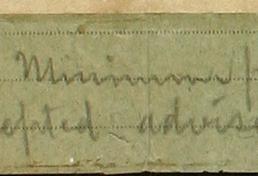 Minimum p
epted advis